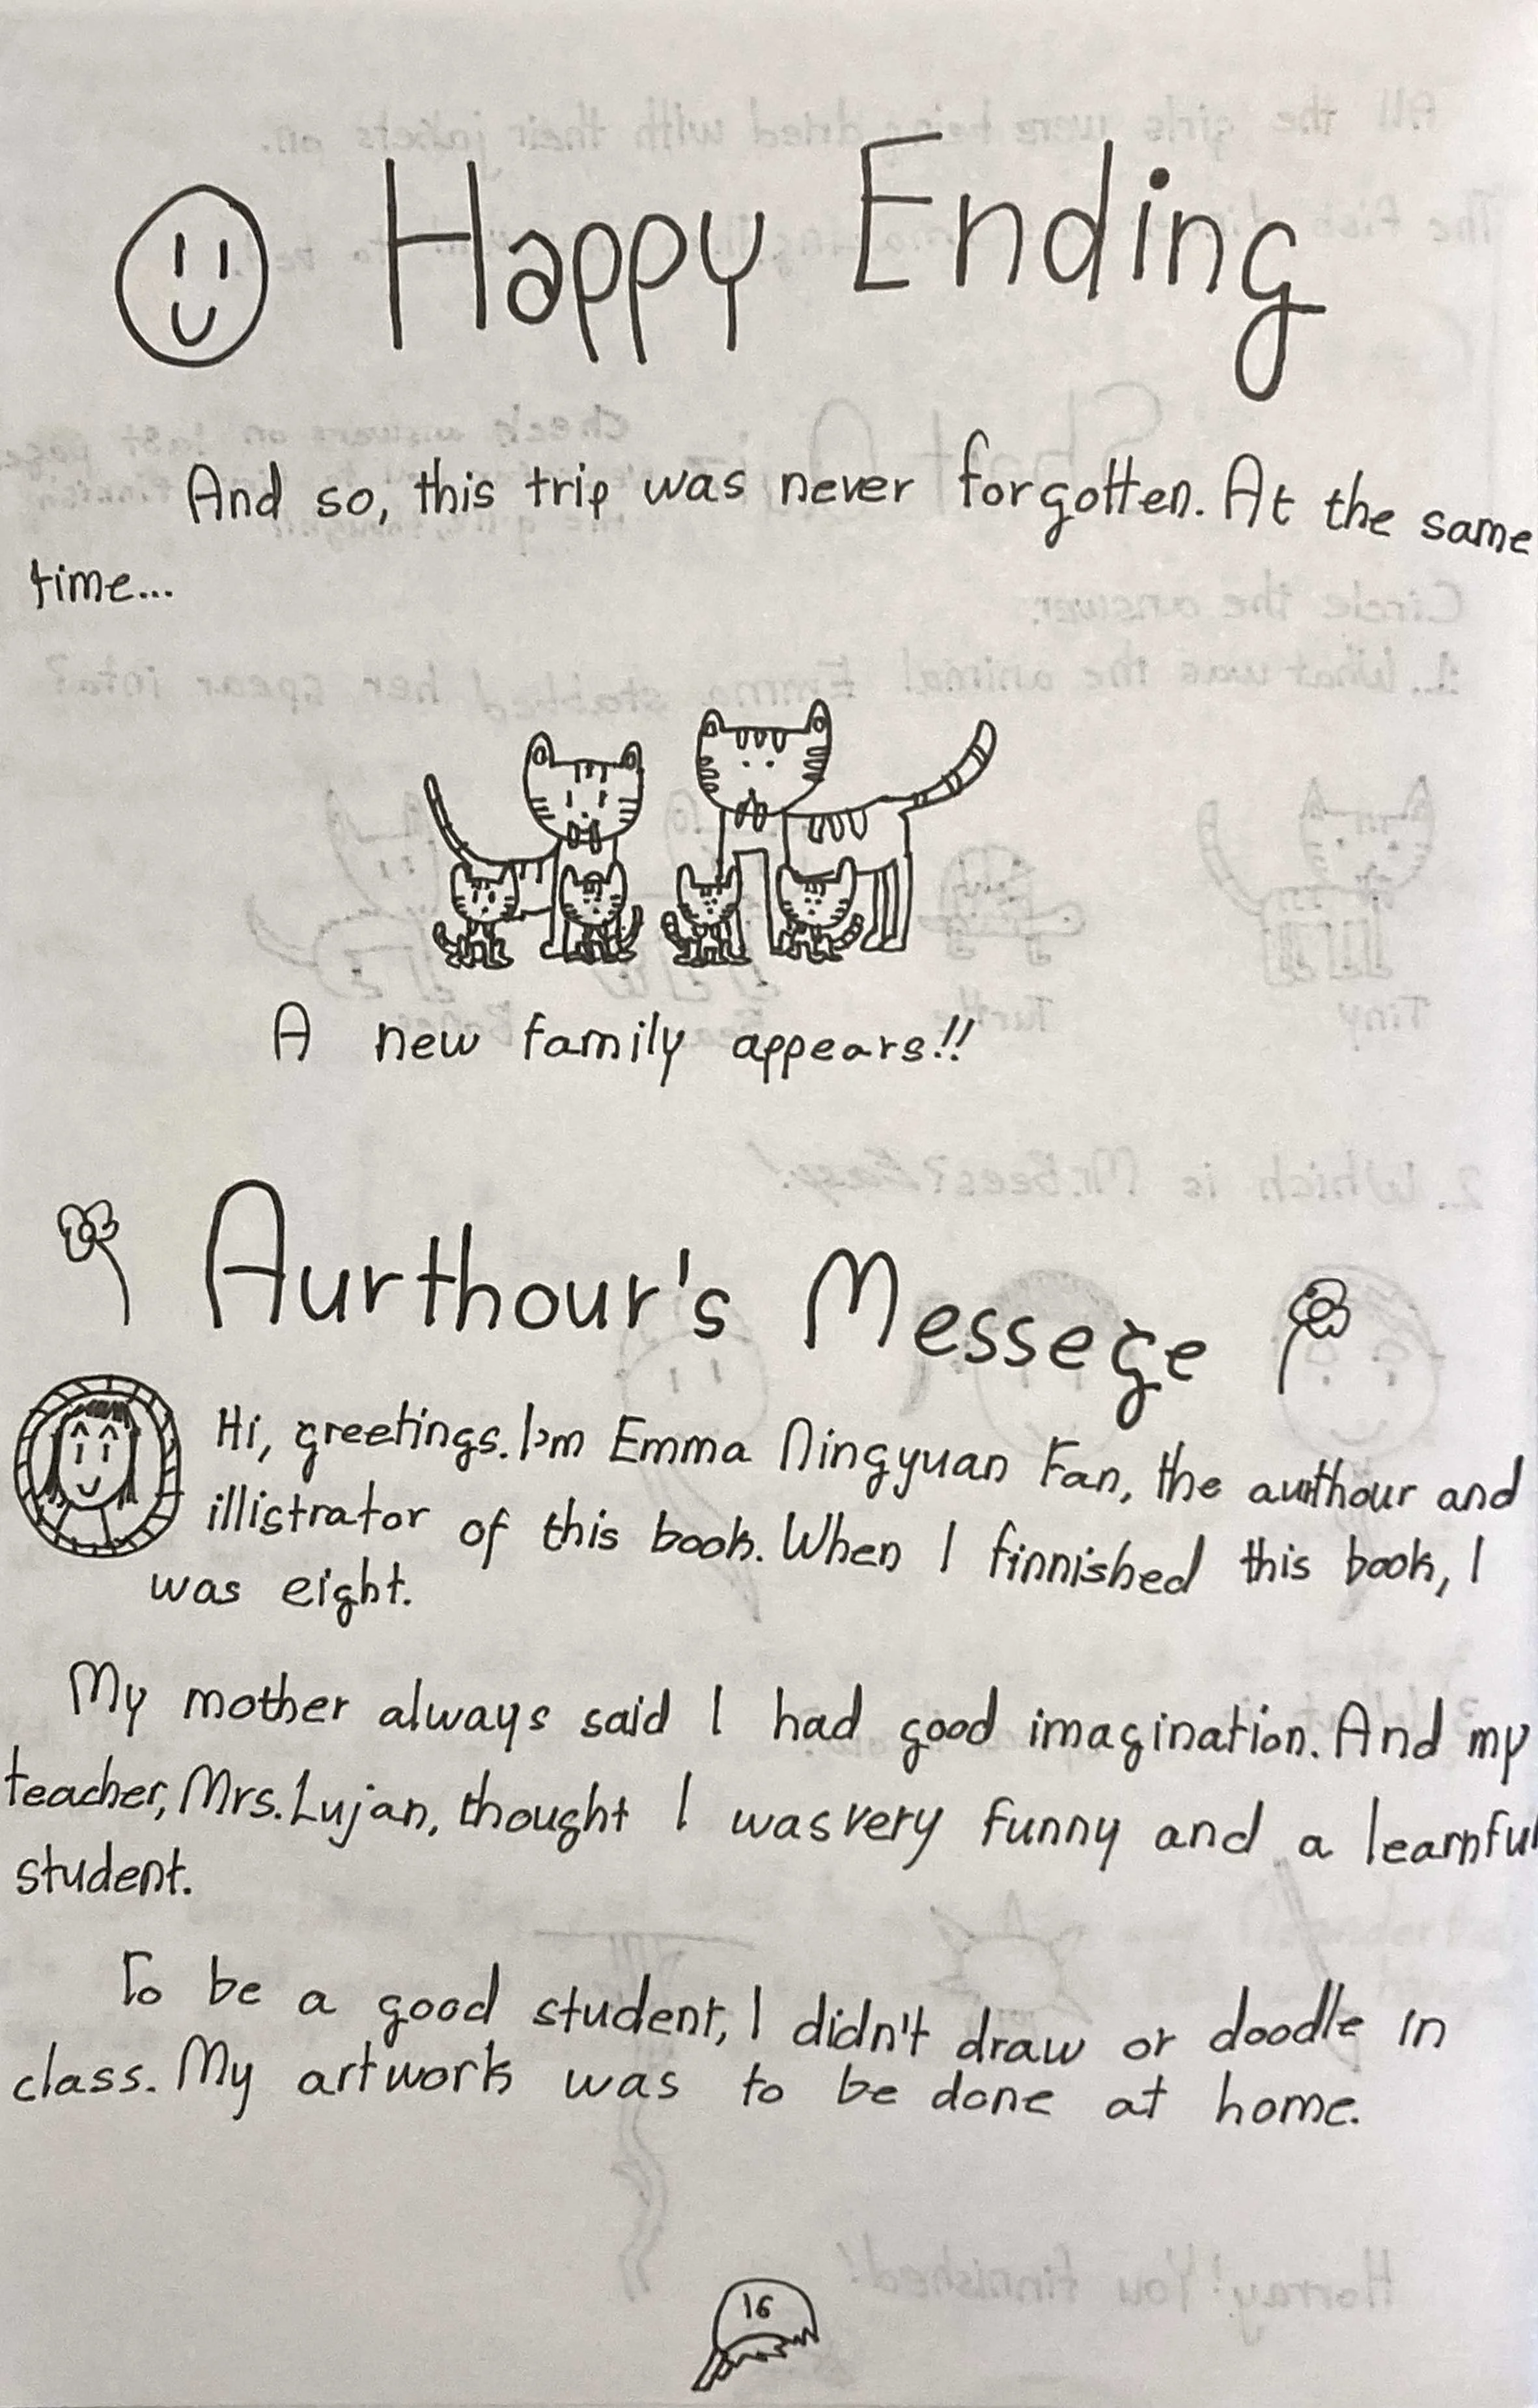 Happy Ending
And so, this trip was never forgotten. At the same
time...
A new family appears!!
Aurthour's Messege
Hi, greetings. I'm Emma Ningyuan Fan, the aurthour and
illistrator of this book. When I finnished this book, I
was eight.
My mother always said I had good imagination. And my
teacher, Mrs. Lujan, thought I was very funny and a learnful
student.
To be a good student, I didn't draw or doodle in
class. My artwork was to be done at home.
16